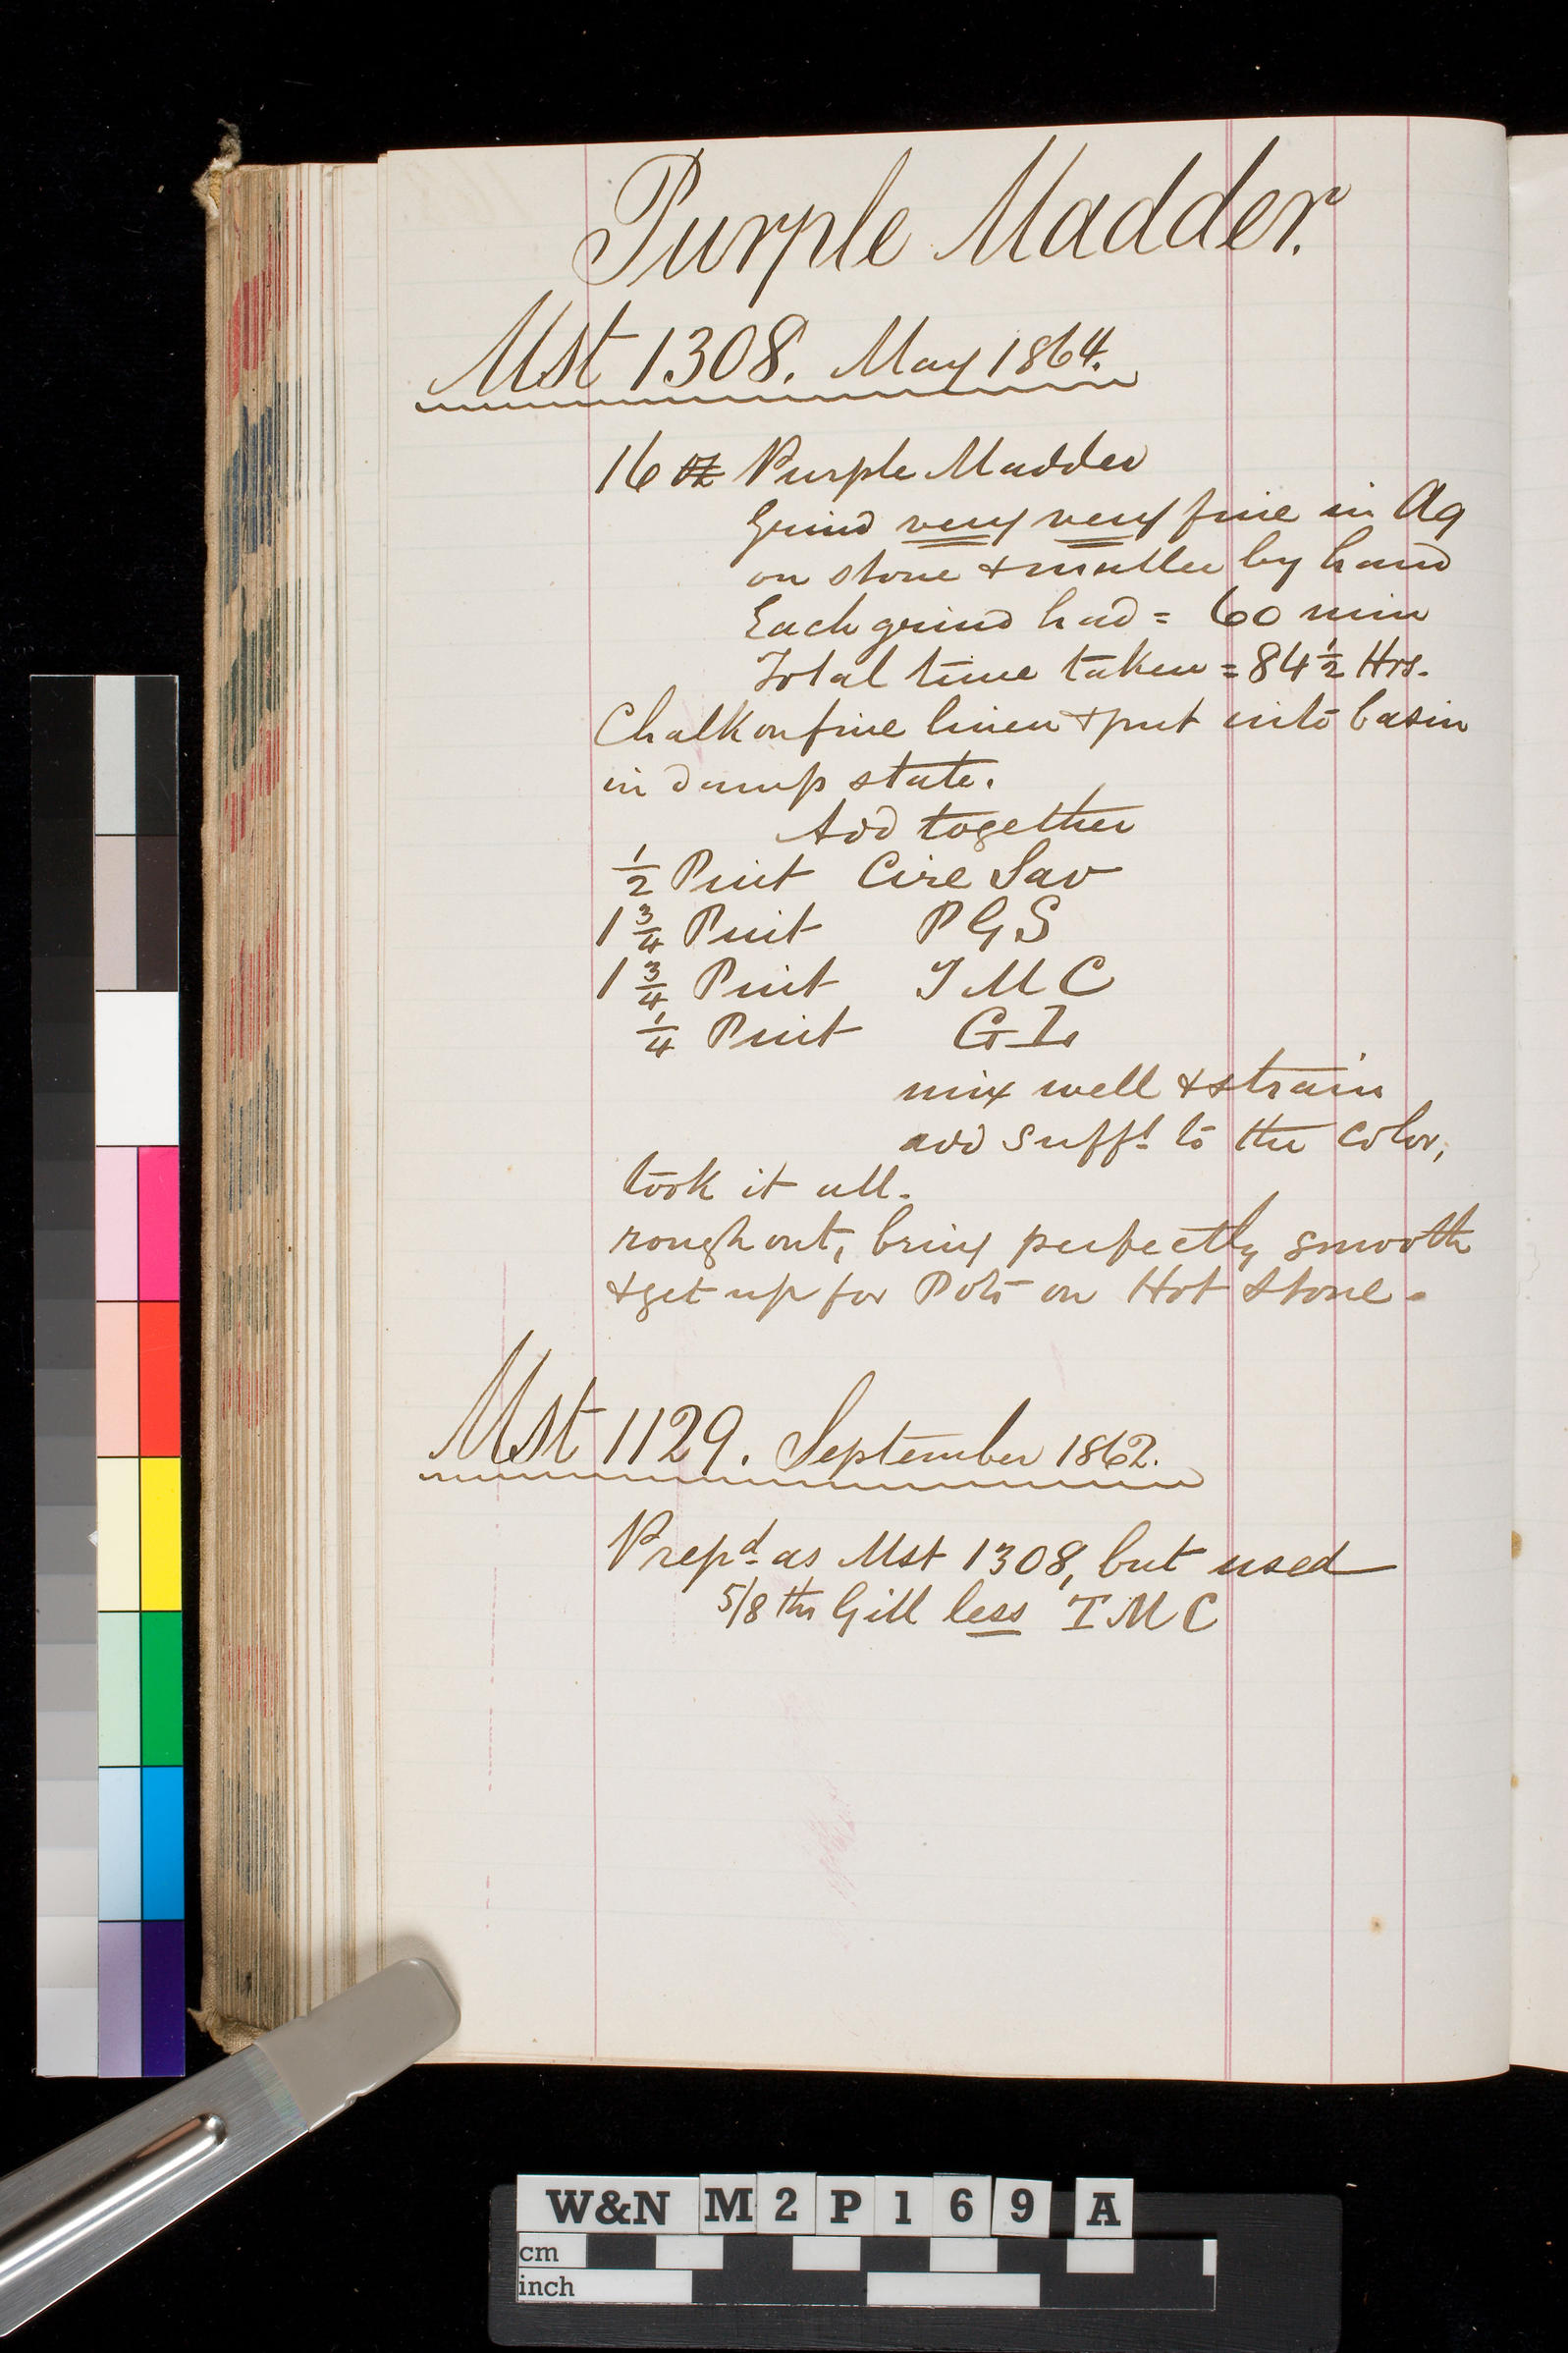 Purple Madder.
Mst 1308. May 1864.
16 oz Purple Madder
Grind very very fine in Aq
on stone & muller by hand
Each grind had = 60 min
Total time taken = 84½ Hrs.
Chalk on fine linen & put into basin
in damp state.
Add together
½ Pint Cire Sav
1¾ Pint P G S
1¾ Pint T M C
¼ Pint G I
mix well & strain
add sufft to the color,
took it all.
rough out, bring perfectly smooth
& get up for Pots on Hot Stone.
Mst 1129. September 1862.
Prepd as Mst 1308, but used
5/8 ths Gill less T M C
W&N M2P169 A
cm
inch